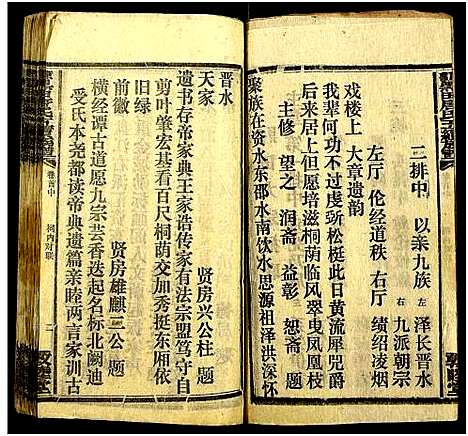 二排中　以亲九族　左　泽长晋水
右　九派朝宗
左厅　伦经道秩　右厅　绩绍凌烟
戏楼上　大章遗韵
我辈流干不过虔松梃此日黄流犀兕爵
后来居上但愿培滋桐荫临风翠曳凤凰枝
主修　望之　润斋　益彰　恕斋　题
聚族在资水东邵水南饮水思源祖泽洪深怀
晋水
天家　贤房兴公柱　题
遗书存帝家典王家诰传家有法宗盟笃守自
剪叶肇宏基看百尺桐荫交加秀挺东厢依
旧绿
前徽　贤房雄麒二公　题
横经谭古道愿九宗芸香迭起名标北阙迪
受氏本尧都读帝典遗篇亲睦两言家训古
卷首中　祠内对联　二